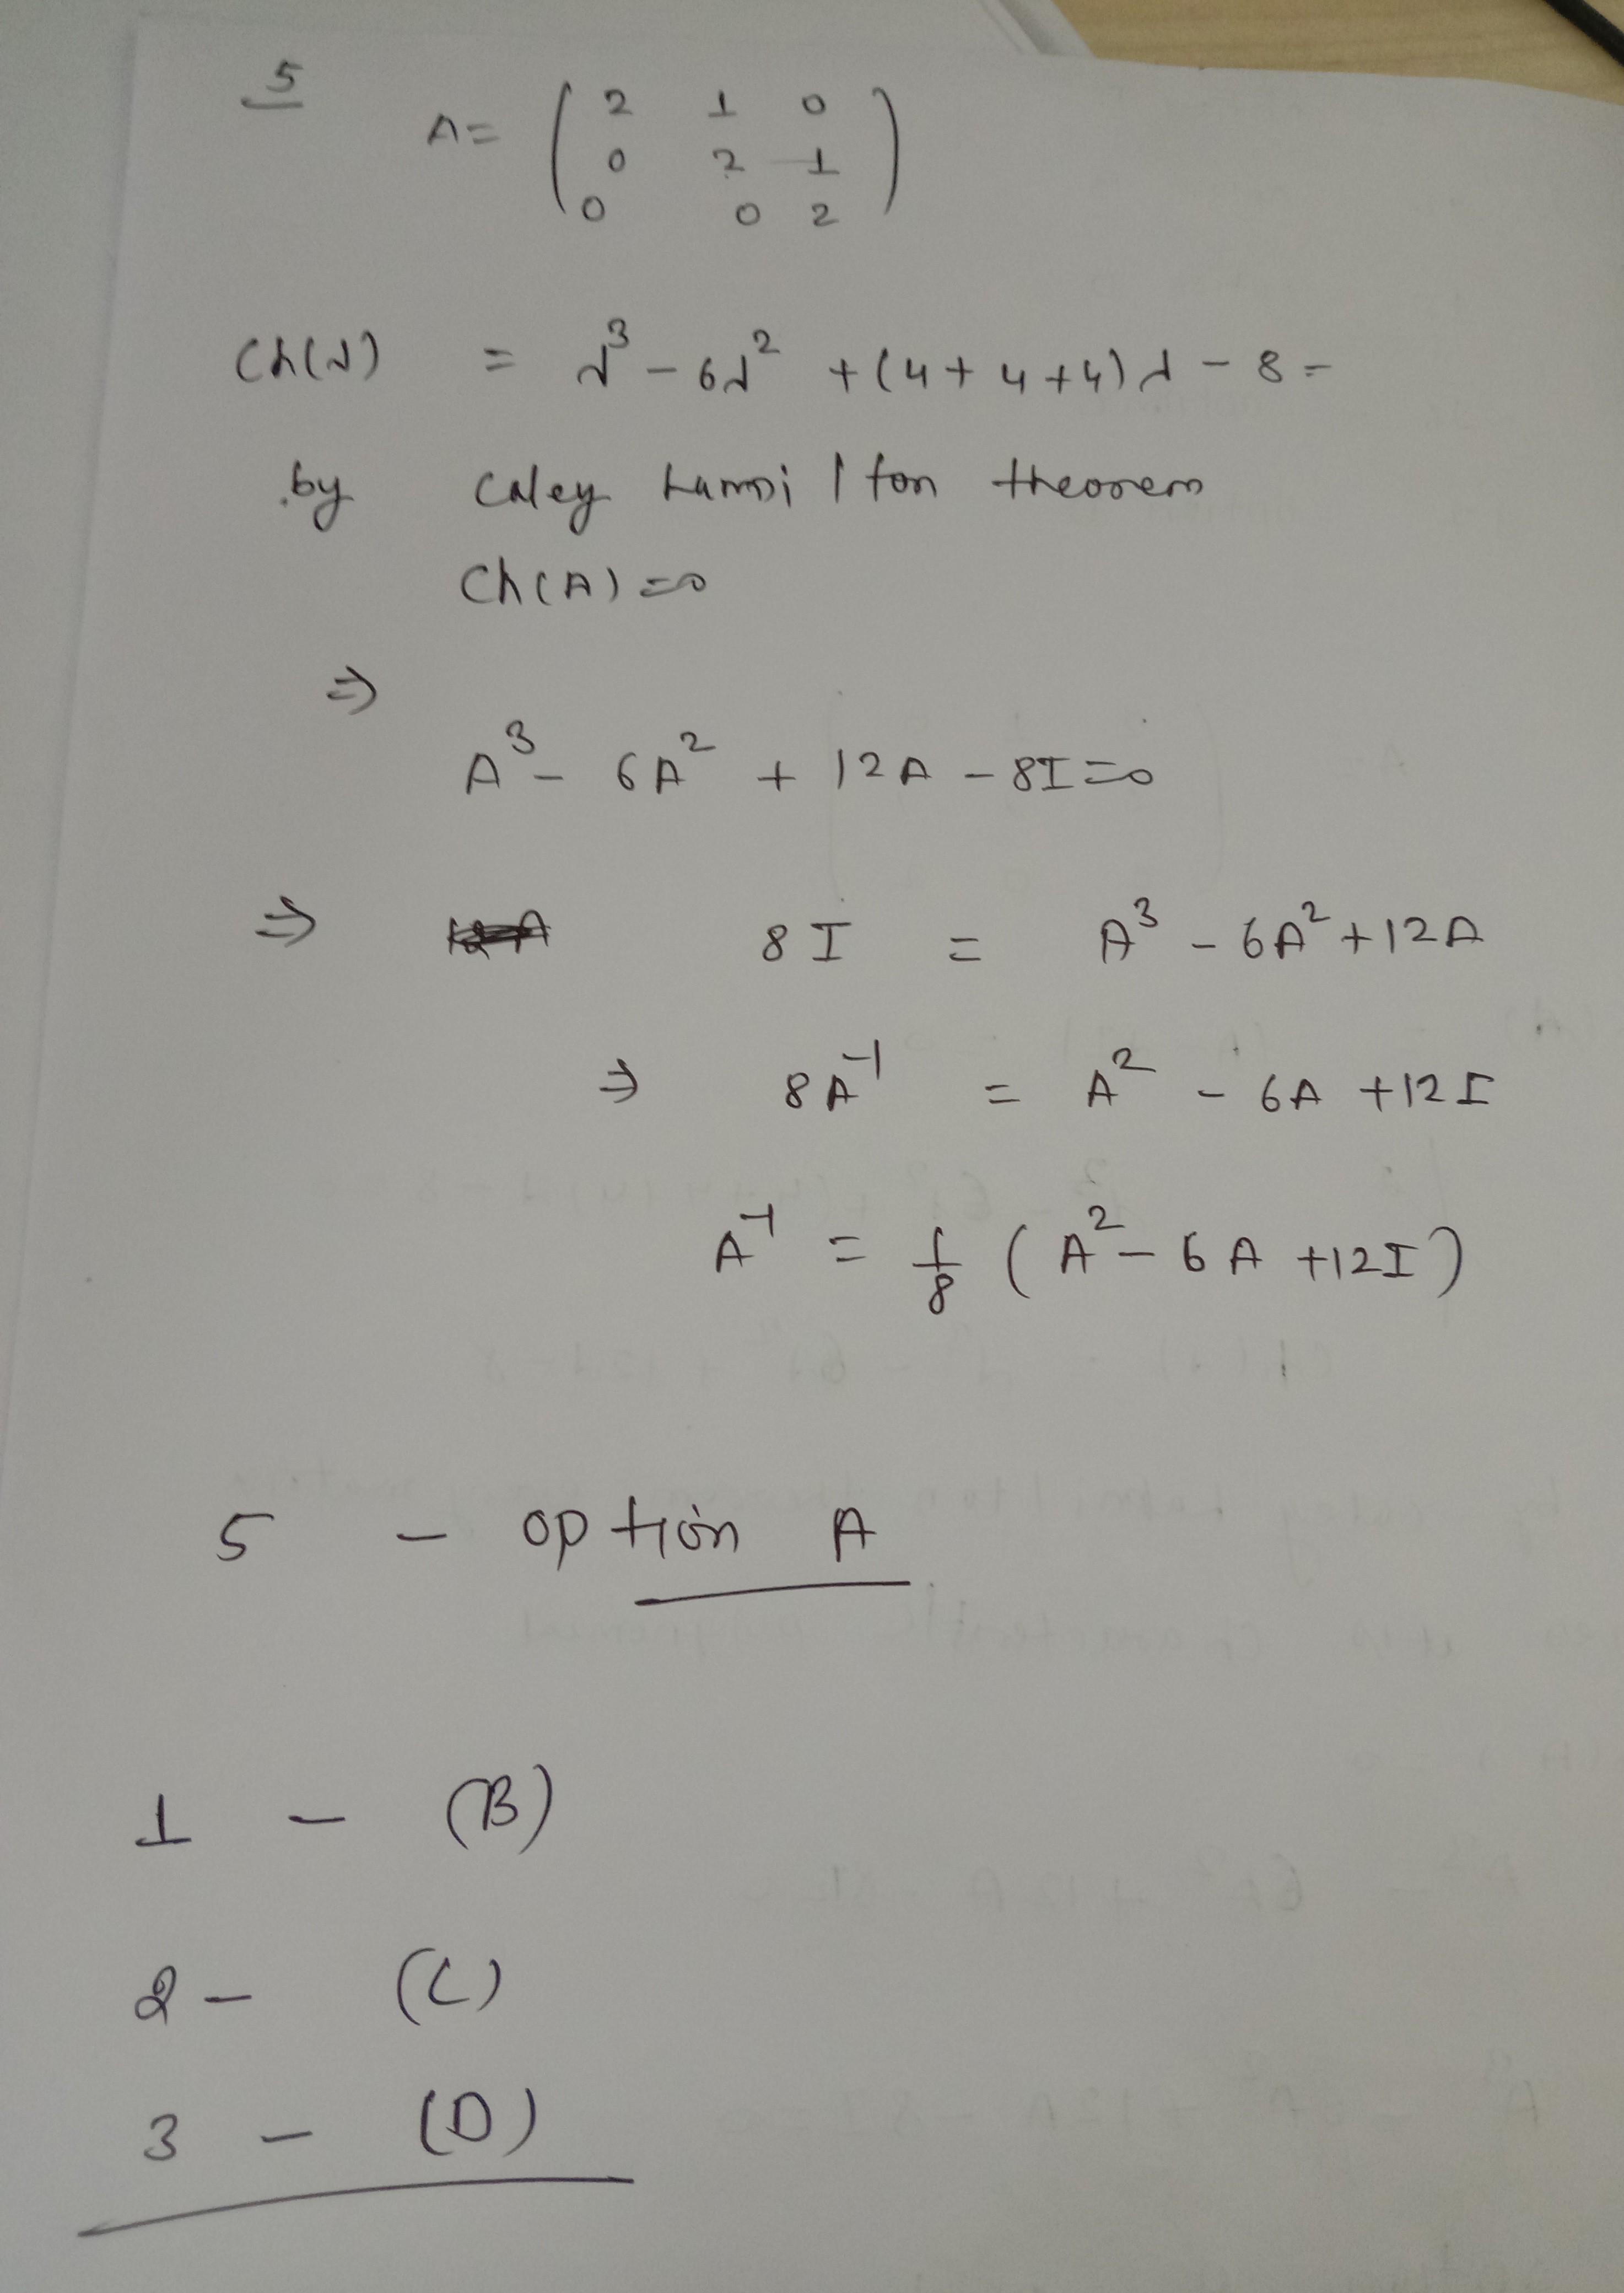 5
A = ( 2 1 0
0 2 1
0 0 2 )
Ch(λ) = λ³ - 6λ² + (4+4+4)λ - 8 =
by Caley hamilton theorem
Ch(A) = 0
⇒
A³ - 6A² + 12A - 8I = 0
⇒ 8I = A³ - 6A² + 12A
⇒ 8A⁻¹ = A² - 6A + 12I
A⁻¹ = 1/8 ( A² - 6A + 12I )
5 - option A
1 - (B)
2 - (C)
3 - (D)